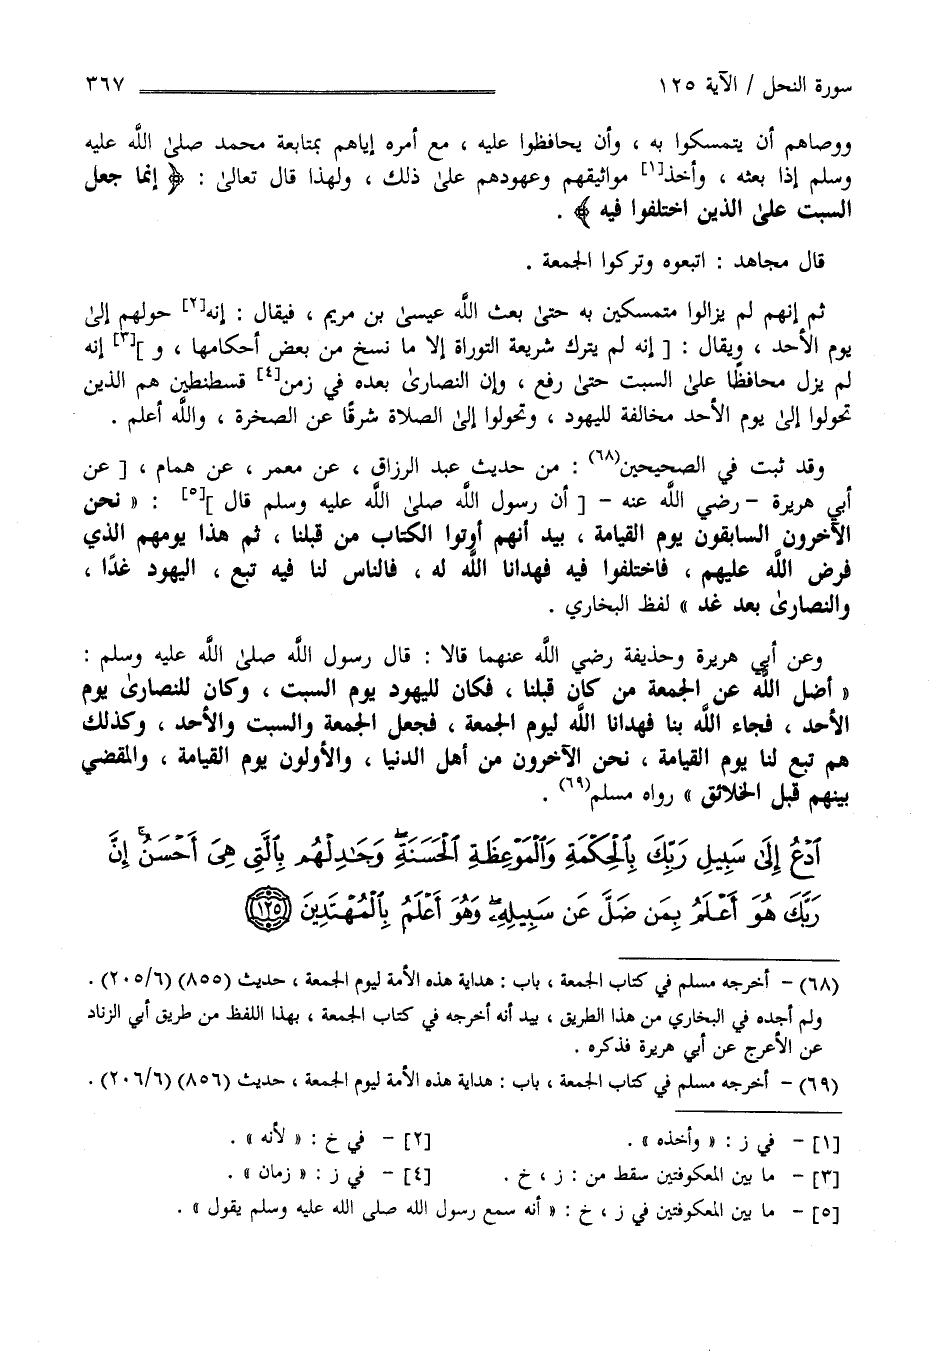 سورة النحل / الآية ١٢٥ ٣٦٧
ووصاهم أن يتمسكوا به ، وأن يحافظوا عليه ، مع أمره إياهم بمتابعة محمد صلىٰ اللَّه عليه
وسلم إذا بعثه ، وأخذ[١] مواثيقهم وعهودهم علىٰ ذلك ، ولهذا قال تعالىٰ : ﴿ إنما جعل
السبت علىٰ الذين اختلفوا فيه ﴾ .
قال مجاهد : اتبعوه وتركوا الجمعة .
ثم إنهم لم يزالوا متمسكين به حتىٰ بعث اللَّه عيسىٰ بن مريم ، فيقال : إنه[٢] حولهم إلىٰ
يوم الأحد ، ويقال : [ إنه لم يترك شريعة التوراة إلا ما نسخ من بعض أحكامها ، و ][٣] إنه
لم يزل محافظًا علىٰ السبت حتىٰ رفع ، وإن النصارىٰ بعده في زمن[٤] قسطنطين هم الذين
تحولوا إلىٰ يوم الأحد مخالفة لليهود ، وتحولوا إلىٰ الصلاة شرقًا عن الصخرة ، واللَّه أعلم .
وقد ثبت في الصحيحين(٦٨) : من حديث عبد الرزاق ، عن معمر ، عن همام ، [ عن
أبي هريرة - رضي اللَّه عنه - [ أن رسول اللَّه صلىٰ اللَّه عليه وسلم قال ][٥] : « نحن
الآخرون السابقون يوم القيامة ، بيد أنهم أوتوا الكتاب من قبلنا ، ثم هذا يومهم الذي
فرض اللَّه عليهم ، فاختلفوا فيه فهدانا اللَّه له ، فالناس لنا فيه تبع ، اليهود غدًا ،
والنصارىٰ بعد غد » لفظ البخاري .
وعن أبي هريرة وحذيفة رضي اللَّه عنهما قالا : قال رسول اللَّه صلىٰ اللَّه عليه وسلم :
« أضل اللَّه عن الجمعة من كان قبلنا ، فكان لليهود يوم السبت ، وكان للنصارىٰ يوم
الأحد ، فجاء اللَّه بنا فهدانا اللَّه ليوم الجمعة ، فجعل الجمعة والسبت والأحد ، وكذلك
هم تبع لنا يوم القيامة ، نحن الآخرون من أهل الدنيا ، والأولون يوم القيامة ، والمقضي
بينهم قبل الخلائق » رواه مسلم(٦٩) .
ٱدۡعُ إِلَىٰ سَبِيلِ رَبِّكَ بِٱلۡحِكۡمَةِ وَٱلۡمَوۡعِظَةِ ٱلۡحَسَنَةِۖ وَجَٰدِلۡهُم بِٱلَّتِي هِيَ أَحۡسَنُۚ إِنَّ
رَبَّكَ هُوَ أَعۡلَمُ بِمَن ضَلَّ عَن سَبِيلِهِۦ وَهُوَ أَعۡلَمُ بِٱلۡمُهۡتَدِينَ ١٢٥
(٦٨) - أخرجه مسلم في كتاب الجمعة ، باب : هداية هذه الأمة ليوم الجمعة ، حديث (٨٥٥) (٢٠٥/٦) .
ولم أجده في البخاري من هذا الطريق ، بيد أنه أخرجه في كتاب الجمعة ، بهذا اللفظ من طريق أبي الزناد
عن الأعرج عن أبي هريرة فذكره .
(٦٩) - أخرجه مسلم في كتاب الجمعة ، باب : هداية هذه الأمة ليوم الجمعة ، حديث (٨٥٦) (٢٠٦/٦) .
[١] - في ز : « وأخذه » . [٢] - في خ : « لأنه » .
[٣] - ما بين المعكوفتين سقط من : ز ، خ . [٤] - في ز : « زمان » .
[٥] - ما بين المعكوفتين في ز ، خ : « أنه سمع رسول الله صلى الله عليه وسلم يقول » .